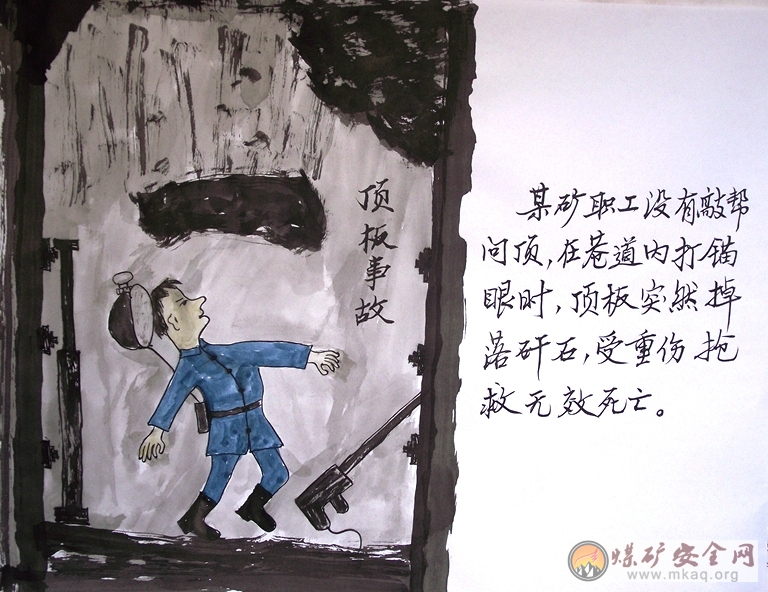 顶板事故
某矿职工没有敲帮
问顶,在巷道内打锚
眼时,顶板突然掉
落矸石,受重伤抢
救无效死亡。
煤矿安全网
www.mkaq.org